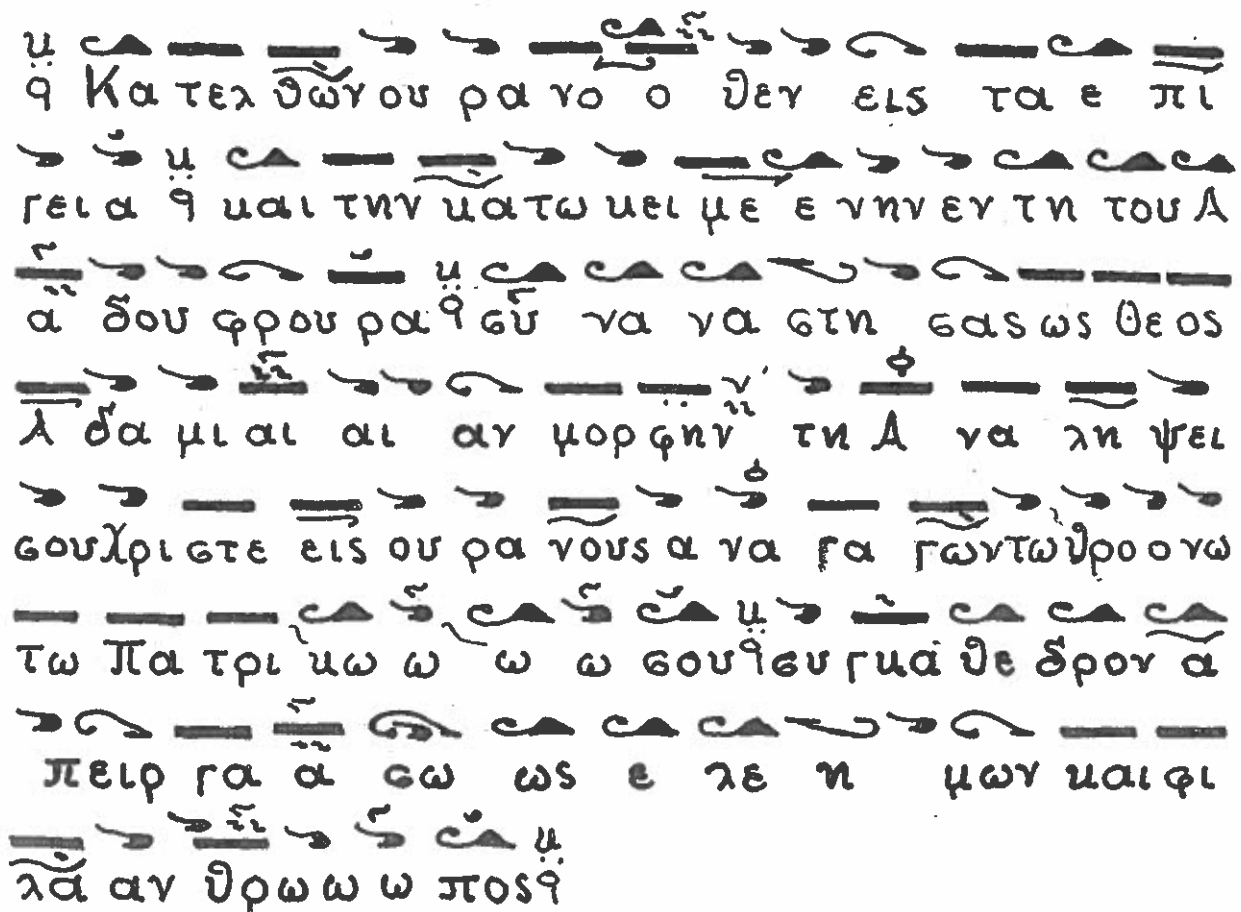 Κα τελ θων ου ρα νο ο θεν εις τα ε πι
γει α και την κα τω κει με ε νην εν τη του Α
α δου φρου ρα συ να να στη σας ως θε ος
Α δα μι αι αι αν μορ φην τη Α να λη ψει
σου Χρι στε εις ου ρα νους α να γα γων τω θρο ο νω
τω Πα τρι κω ω ω ω σου συ γκα θε δρον α
πειρ γα α σω ως ε λε η μων και φι
λα αν θρω ω ω πος